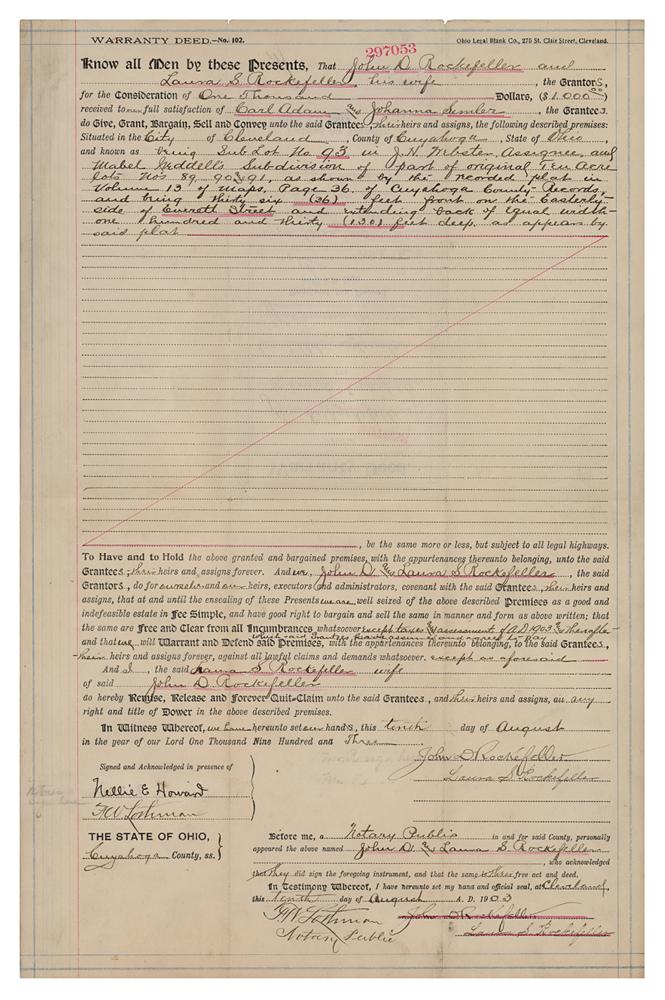 WARRANTY DEED.—No. 102. Ohio Legal Blank Co., 275 St. Clair Street, Cleveland.
297053
Know all Men by these Presents, That John D. Rockefeller and
Laura S. Rockefeller, his wife, the Grantors,
for the Consideration of One Thousand Dollars, ($1.000 00)
received to our full satisfaction of Carl Adam & Johanna Simler, the Grantees
do Give, Grant, Bargain, Sell and Convey unto the said Grantees, their heirs and assigns, the following described premises:
Situated in the City of Cleveland, County of Cuyahoga, State of Ohio,
and known as being Sub Lot No 93 in J. H. Webster, Assignee, and
Mabel Subdivision of part of original Ten Acre
lots Nos 89 90 & 91, as shown by the recorded plat in
Volume 13 of maps, Page 36, of Cuyahoga County Records,
and being thirty six (36) feet front on the Easterly
side of Everett Street and extending back of equal width
one hundred and thirty (130) feet deep, as appears by
said plat
, be the same more or less, but subject to all legal highways.
To Have and to Hold the above granted and bargained premises, with the appurtenances thereunto belonging, unto the said
Grantees, their heirs and assigns forever. And we, John D. & Laura S. Rockefeller, the said
Grantors, do for ourselves and our heirs, executors and administrators, covenant with the said Grantees, their heirs and
assigns, that at and until the ensealing of these Presents we are well seized of the above described Premises as a good and
indefeasible estate in Fee Simple, and have good right to bargain and sell the same in manner and form as above written; that
the same are Free and Clear from all Incumbrances whatsoever except taxes & assessments of A.D. 1903 & thereafter
which said Grantees assume and agree to pay
and that we will Warrant and Defend said Premises, with the appurtenances thereunto belonging, to the said Grantees,
their heirs and assigns forever, against all lawful claims and demands whatsoever. except as aforesaid
And I, the said Laura S. Rockefeller wife
of said John D. Rockefeller
do hereby Remise, Release and Forever Quit-Claim unto the said Grantees, and their heirs and assigns, all my
right and title of Dower in the above described premises.
In Witness Whereof, we have hereunto set our hands, this tenth day of August
in the year of our Lord One Thousand Nine Hundred and Three
John D Rockefeller
Signed and Acknowledged in presence of
Laura S. Rockefeller
Nellie E Howard
THE STATE OF OHIO,
Cuyahoga County, ss.
Before me, a Notary Public in and for said County, personally
appeared the above named John D. & Laura S. Rockefeller
, who acknowledged
that they did sign the foregoing instrument, and that the same is their free act and deed.
In Testimony Whereof, I have hereunto set my hand and official seal, at Cleveland,
this tenth day of August A. D. 1903
John D Rockefeller
Notary Public Laura S. Rockefeller